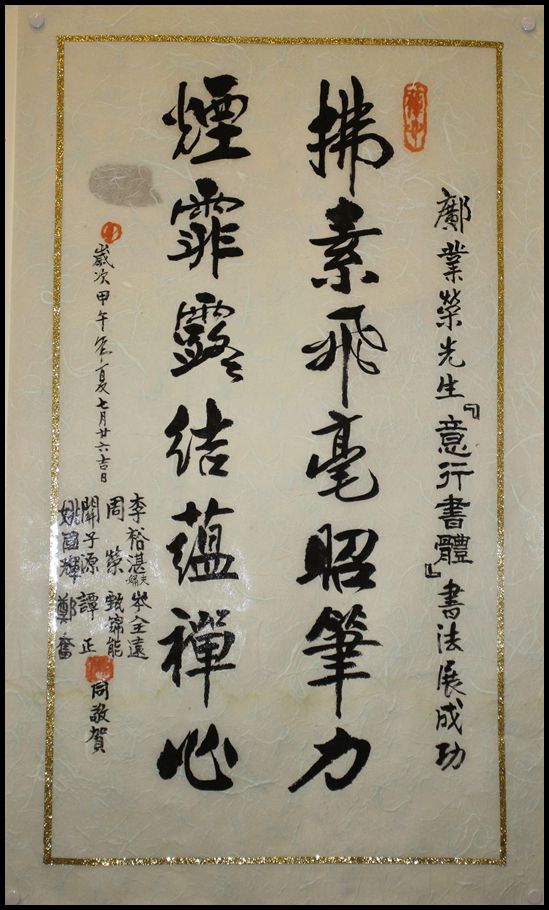 鄺業榮先生『意行書體』書法展成功
拂素飛毫昭筆力
煙霏露結蘊禪心
歲次甲午年夏七月廿六吉日
李裕湛夫婦 岑全遠
周榮 甄 能
關子源 譚正
姚國輝 鄭奮
同敬賀